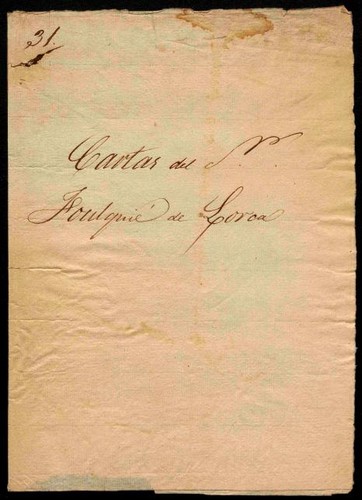 31.
Cartas del Sr.
Foulquié de Lorca